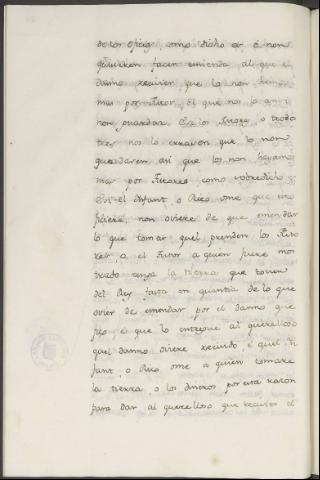 de los oficios, como dicho es, e non
quisieren facer emienda al que el
danno recivier, que lo non
mas por Fiador, el que no lo
non guardar. E a los Fiadores, o todos
tres nos lo
guardaren asi que los non hayamos
mas por Fiadores, como sobredicho
E si el Infant, o Rico ome que esto
ficiere, non oviere de que emendar
lo que tomar quel prenden los Fiado
res, o el Fiador a quien fuere mos
trado tenga la tierra que toviere
del Rey fasta en quantia de lo que
ovier de emendar por el danno que
fizo e que lo entregue al querelloso
quel danno oviere recivido, e quel In
fant, o Rico ome a quien tomare
la tierra, o los dineros por esta razon
para dar al querelloso que recivio el